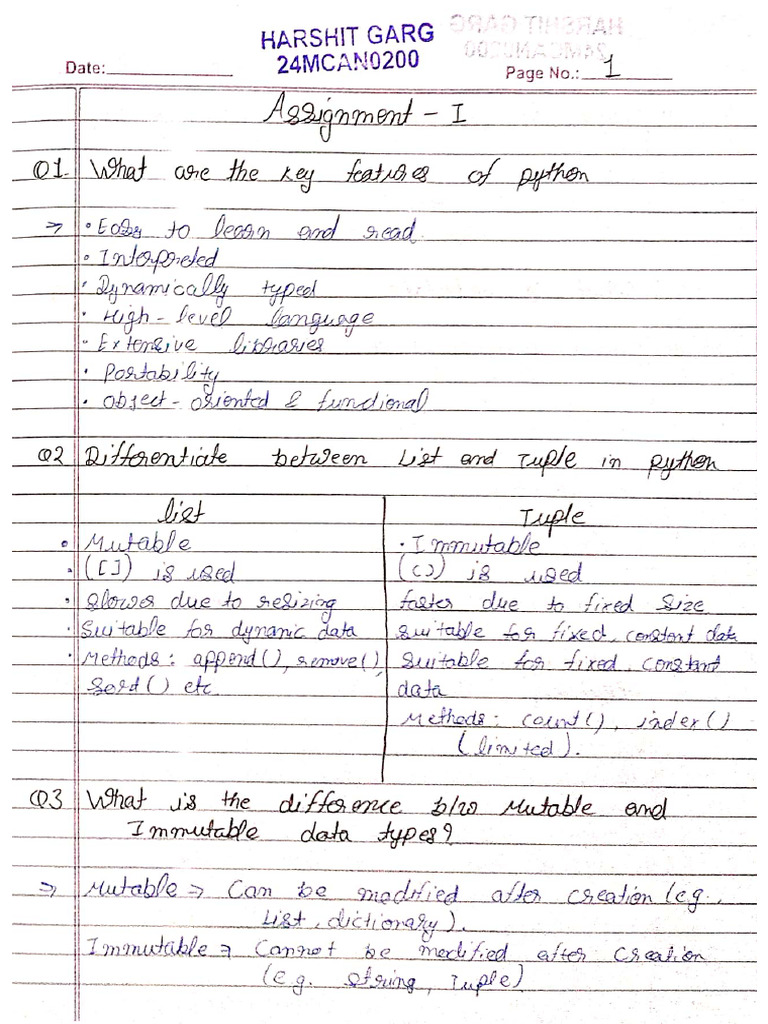 HARSHIT GARG
24MCAN0200
Date:
Page No.: 1
Assignment - I
Q1. What are the key features of python
⇒ • Easy to learn and read.
• Interpreted
• Dynamically typed
• High-level language
• Extensive libraries
• Portability
• Object-oriented & functional
Q2 Differentiate between List and Tuple in python
list
• Mutable
• ([]) is used
• Slower due to resizing
• Suitable for dynamic data
• Methods: append(), remove(),
sord() etc
Tuple
• Immutable
(()) is used
faster due to fixed size
suitable for fixed, constant data
suitable for fixed, constant
data
Methods: count(), index()
(limited).
Q3 What is the difference b/w Mutable and
Immutable data types?
⇒ Mutable ⇒ Can be modified after creation (e.g.,
List, dictionary).
Immutable ⇒ Cannot be modified after creation
(e.g. string, Tuple)